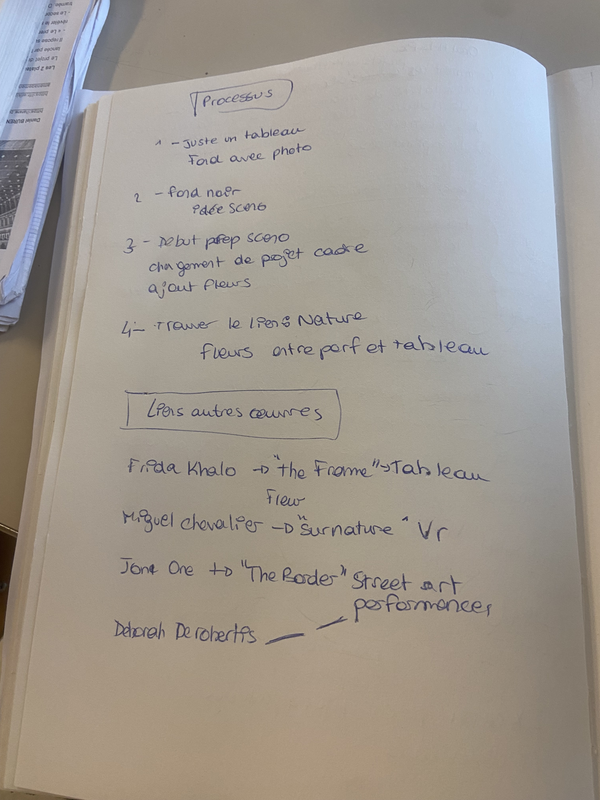 Processus
1 - Juste un tableau
Fond avec photo
2 - fond noir
idée sceno
3 - Début prep sceno
changement de projet cadre
ajout fleurs
4 - Trouver le lien : Nature
fleurs entre perf et tableau
Liens autres œuvres
Frida Khalo → "the Frame" → Tableau
fleur
Miguel chevalier → "Surnature" Vr
Jone One → "The Border" Street art
performances
Deborah De robertis — —
Daniel BUREN
Les 2 platea